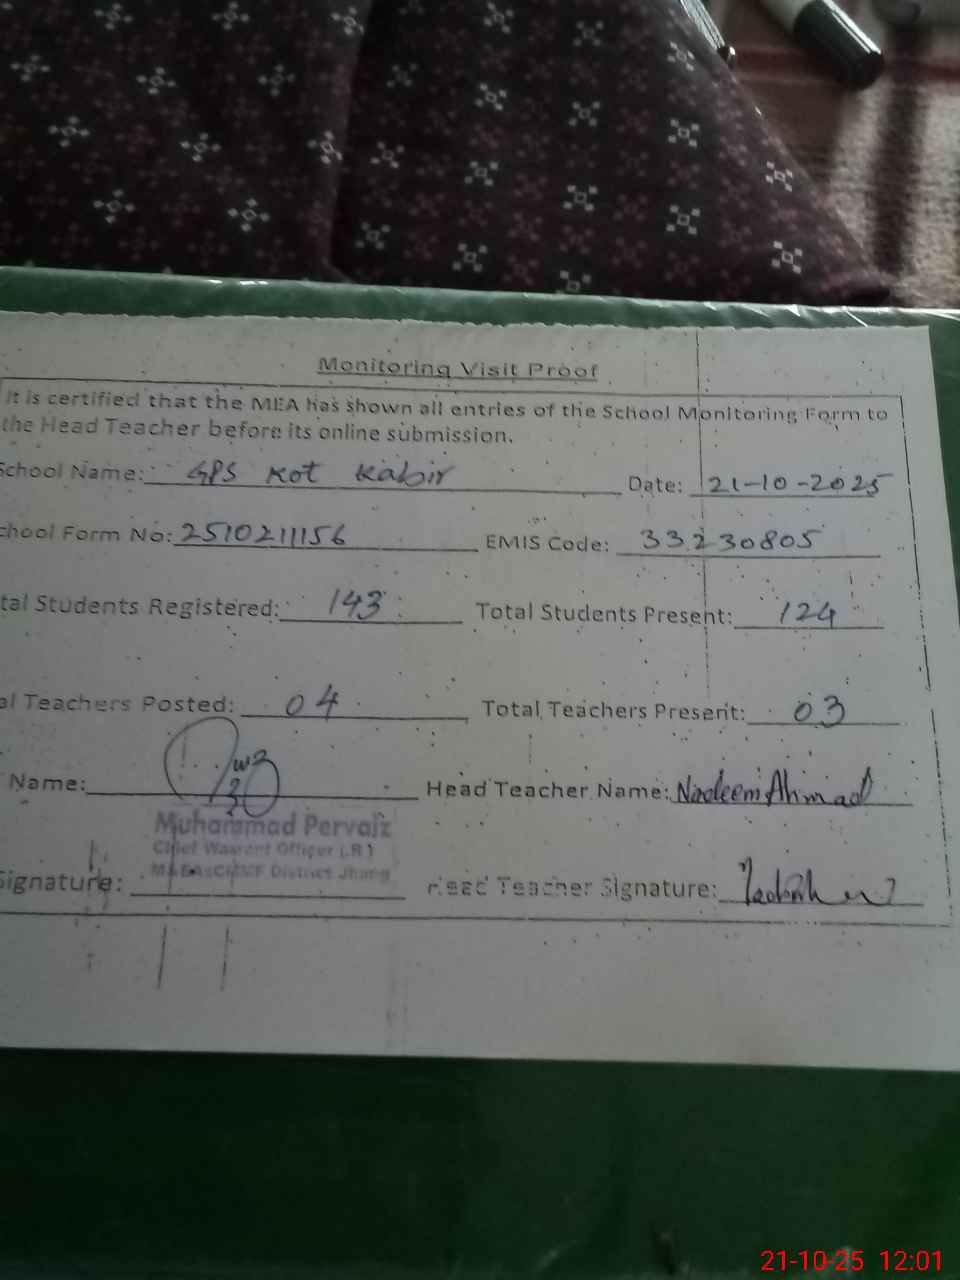 Monitoring Visit Proof
It is certified that the MEA has shown all entries of the School Monitoring Form to
the Head Teacher before its online submission.
School Name: GPS Kot Kabir Date: 21-10-2025
chool Form No: 2510211156 EMIS Code: 33230805
tal Students Registered: 143 Total Students Present: 124
al Teachers Posted: 04 Total Teachers Present: 03
Name: Head Teacher Name: Nadeem Ahmad
Muhammad Pervaiz
Chief Warrant Officer (R)
District Jhang
Signature: Head Teacher Signature:
21-10-25 12:01